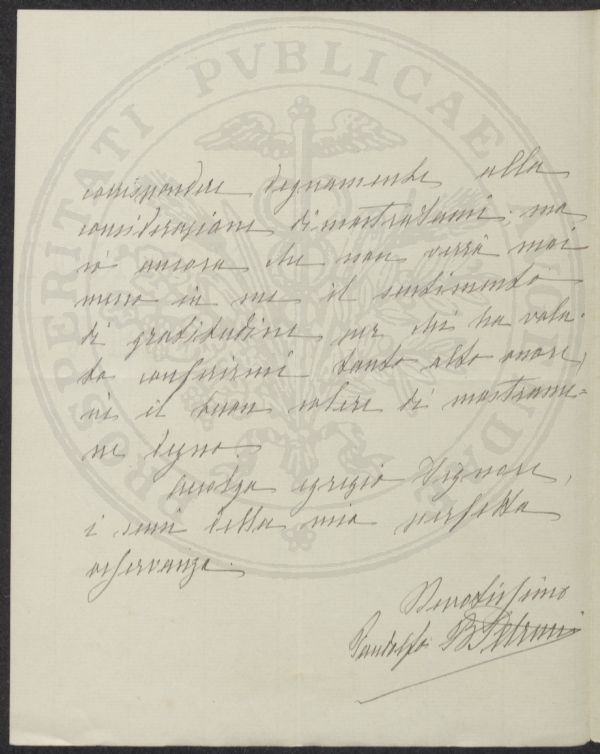 PROSPERITATI PVBLICAE AVGENDAE
corrispondere degnamente alla
considerazione dimostratami; ma
so ancora che non verrà mai
meno in me il sentimento
di gratitudine per chi ha volu-
to conferirmi tanto alto onore,
nè il buon volere di mostrarme-
ne degno.
Accolga egregio Signore,
i sensi della mia perfetta
osservanza.
Devotissimo
Pandolfo